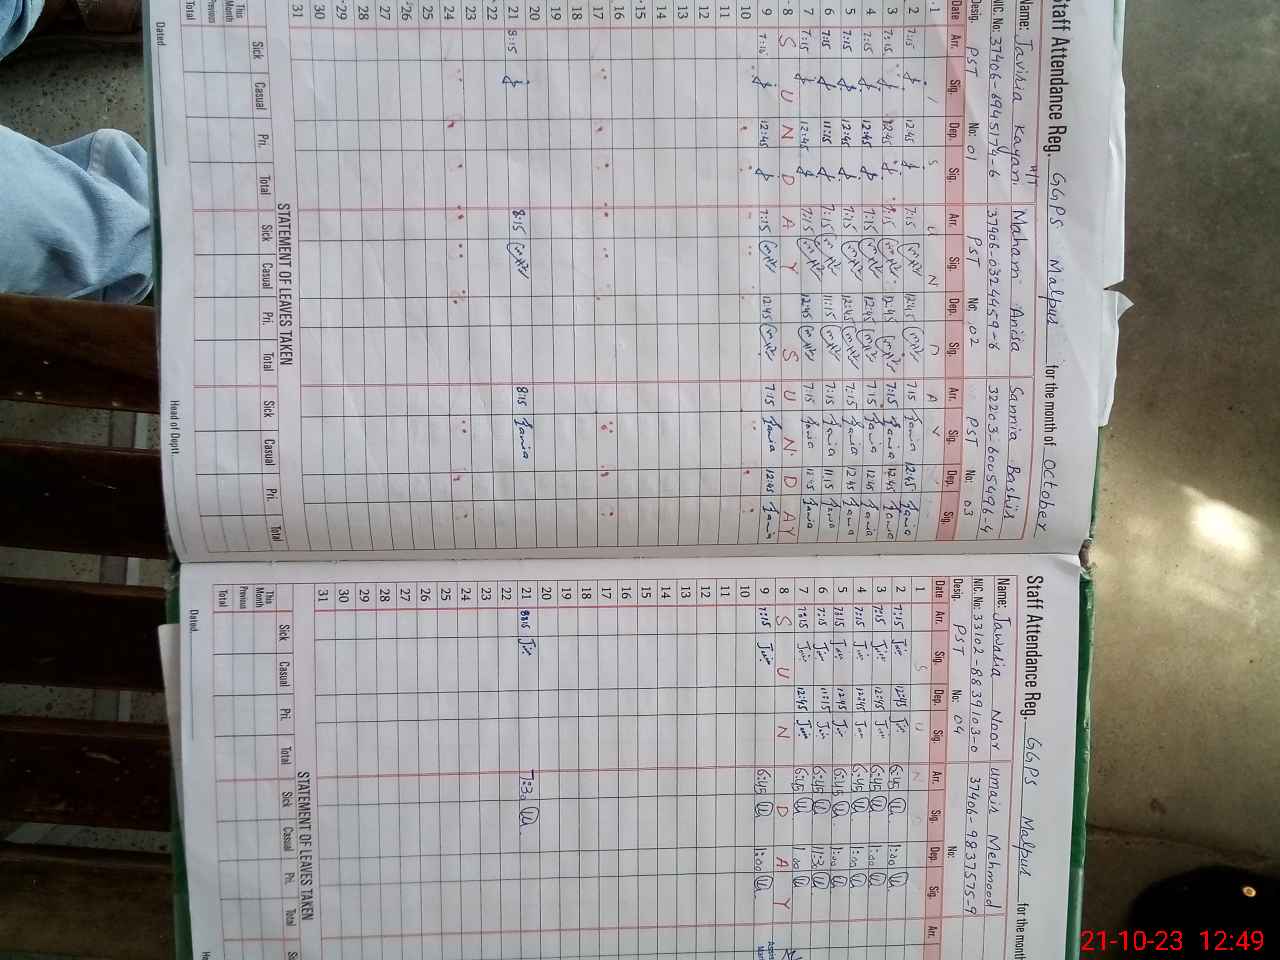 Staff Attendance Reg. GGPS Malpur for the month of October
Name: Javiria Kayani H/T Maham Anisa Sannia Bashir
NIC. No: 37406-6945174-6 37406-0324459-8 32203-6005496-4
Desig. PST No: 01 PST No: 02 PST No: 03
Date Arr. Sig. Dep. Sig. Arr. Sig. Dep. Sig. Arr. Sig. Dep. Sig.
1 S U N D A Y
2 7:15 12:45 7:15 12:45 7:15 Sania 12:45 Sania
3 7:15 12:45 7:15 12:45 7:15 Sania 12:45 Sania
4 7:15 12:45 7:15 12:45 7:15 Sania 12:45 Sania
5 7:15 12:45 7:15 12:45 7:15 Sania 12:45 Sania
6 7:15 11:15 7:15 11:15 7:15 Sania 11:15 Sania
7 7:15 12:45 7:15 12:45 7:15 Sania Sania
8 S U N D A Y S U N D A Y
9 7:15 12:45 7:15 12:45 7:15 Sania 12:45 Sania
10
11
12
13
14
15
16
17
18
19
20
21 8:15 8:15 8:15 Sania
22
23
24
25
26
27
28
29
30
31
STATEMENT OF LEAVES TAKEN
Sick Casual Pri. Total Sick Casual Pri. Total Sick Casual Pri. Total
This Month
Previous
Total
Dated Head of Deptt.
Staff Attendance Reg. GGPS Malpur for the month
Name: Jawairia Noor Umair Mehmood
NIC. No: 33102-8839103-0 37406-9837575-9
Desig. PST No: 04 No:
Date Arr. Sig. Dep. Sig. Arr. Sig. Dep. Sig. Arr.
1 S U N D
2 7:15 12:45 6:45 1:00
3 7:15 12:45 6:45 1:00
4 7:15 12:45 6:45 1:00
5 7:15 12:45 6:45 1:00
6 7:15 11:15 6:45 11:30
7 7:15 12:45 6:45 1:00
8 S U N D A Y
9 7:15 6:45 1:00
10
11
12
13
14
15
16
17
18
19
20
21 8:15 7:30
22
23
24
25
26
27
28
29
30
31
STATEMENT OF LEAVES TAKEN
Sick Casual Pri. Total Sick Casual Pri. Total
This Month
Previous
Total
Dated
21-10-23 12:49